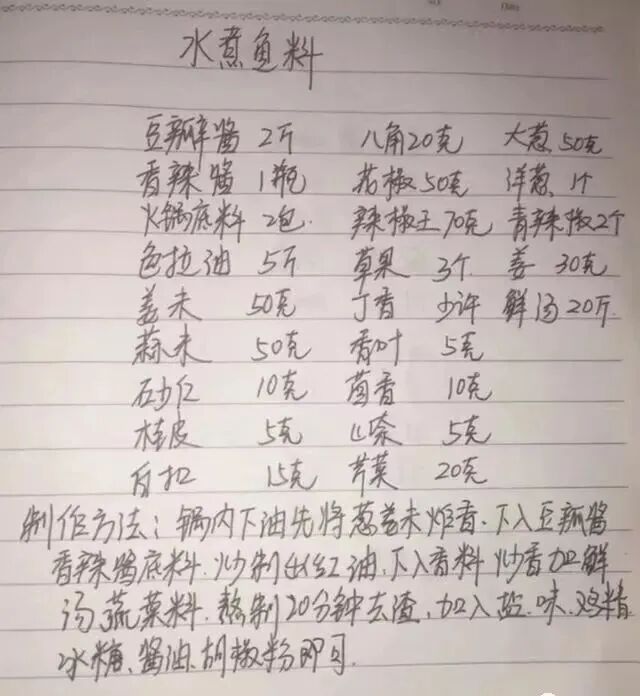 水煮鱼料
豆瓣酱 2斤 八角20克 大葱50克
香辣酱 1瓶 花椒50克 洋葱 1个
火锅底料 2包 辣椒王70克 青辣椒2个
色拉油 5斤 草果 3个 姜 30克
姜末 50克 丁香 少许 鲜汤20斤
蒜末 50克 香叶 5克
砂仁 10克 茴香 10克
桂皮 5克 山奈 5克
白扣 15克 芹菜 20克
制作方法:锅内下油先将葱姜末炸香.下入豆瓣酱
香辣酱底料.炒制出红油,下入香料炒香加鲜
汤蔬菜料.熬制20分钟去渣,加入盐.味.鸡精
冰糖、酱油、胡椒粉即可.